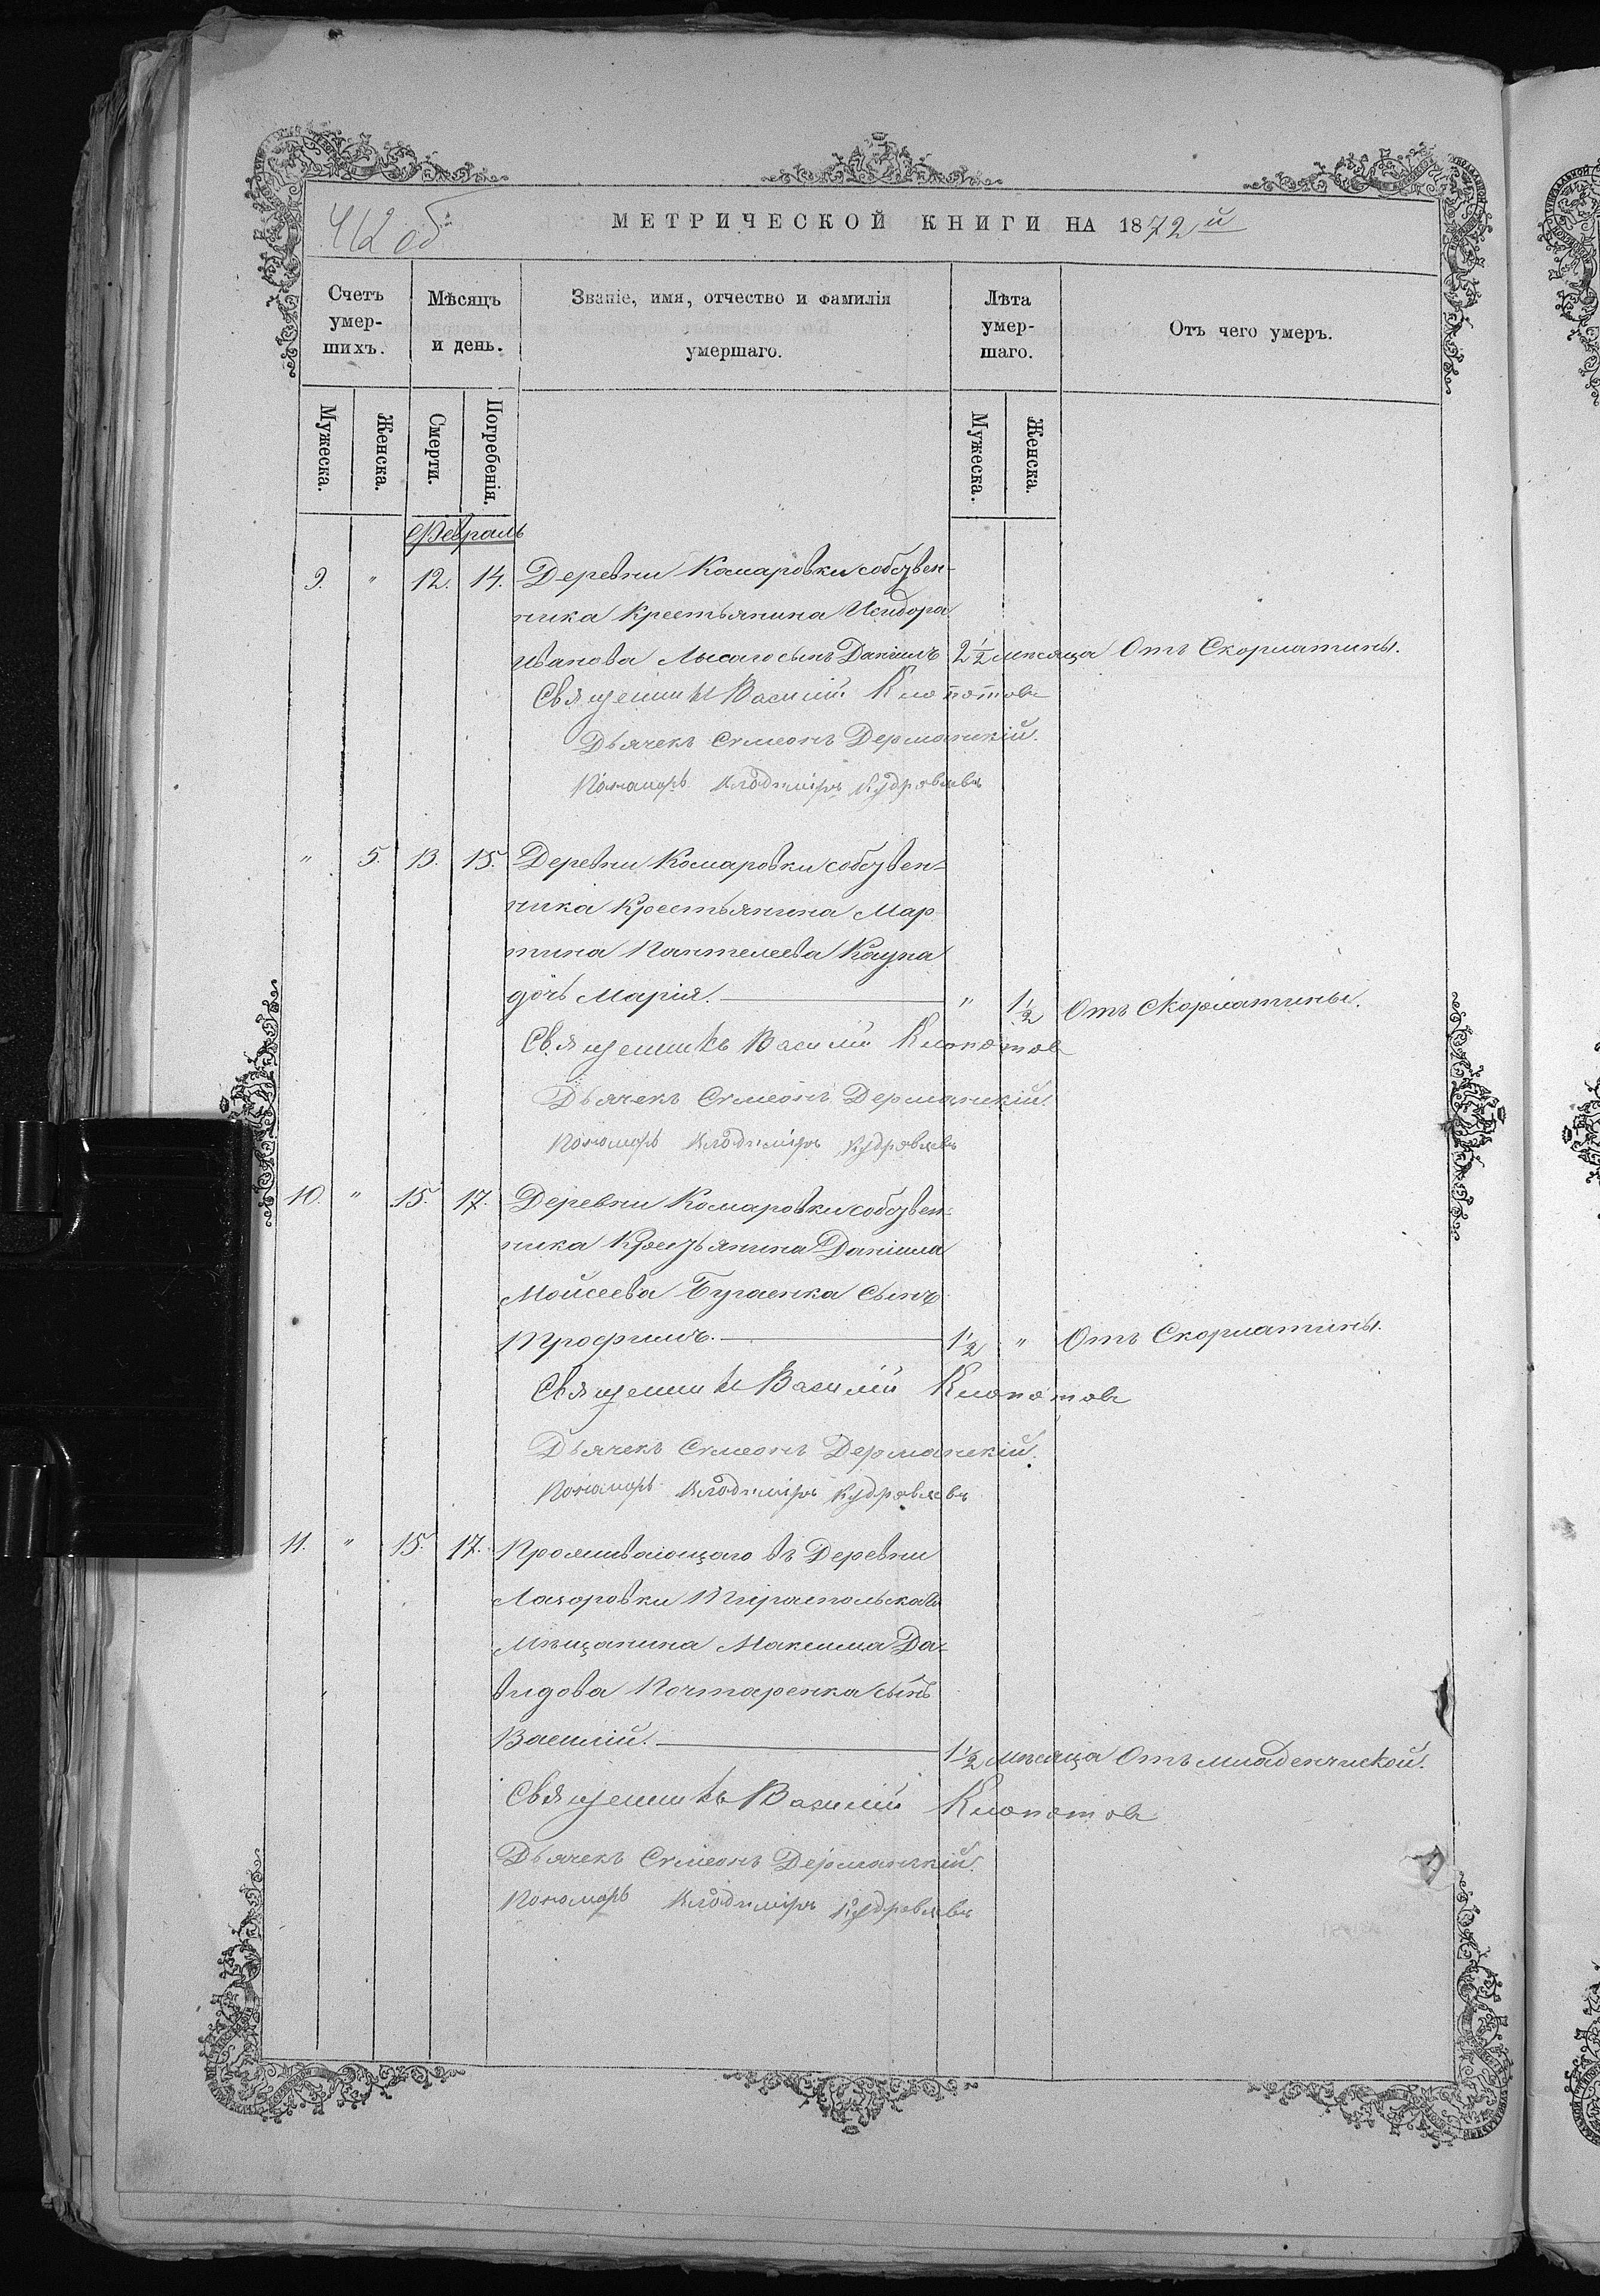 412 об
МЕТРИЧЕСКОЙ КНИГИ НА 1872й
Счетъ умер-шихъ. Мѣсяцъ и день. Званіе, имя, отчество и фамилія умершаго. Лѣта умер-шаго. Отъ чего умеръ.
Мужеска. Женска. Смерти. Погребенія. Мужеска. Женска.
Февраль
9. " 12. 14. Деревни Комаровки собствен-
ника Крестьянина Исидора
Иванова Лысаго сынъ Даніилъ 2½ мѣсяца Отъ Скорлатины.
Священникъ Василій Клопотовъ
Дьячекъ Симеонъ Дерманскій.
Пономарь Владиміръ
" 5. 13. 15. Деревни Комаровки собствен-
ника Крестьянина Мар-
тина Пантелеева Кауна
дочь Марія. " 1½ Отъ Скорлатины.
Священникъ Василій Клопотовъ
Дьячекъ Симеонъ Дерманскій.
Пономарь Владиміръ
10. " 15. 17. Деревни Комаровки собствен-
ника Крестьянина Даніила
Мойсеева Бугаенка сынъ
Трофимъ. 1½ " Отъ Скорлатины.
Священникъ Василій Клопотовъ
Дьячекъ Симеонъ Дерманскій.
Пономарь Владиміръ
11. " 15. 17. Проживающаго въ Деревни
Лазоровки Тираспольскаго
Мѣщанина Максима Да-
видова Почтаренка сынъ
Василій. 1½ мѣсяца Отъ младенчиской.
Священникъ Василій Клопотовъ
Дьячекъ Симеонъ Дерманскій.
Пономарь Владиміръ